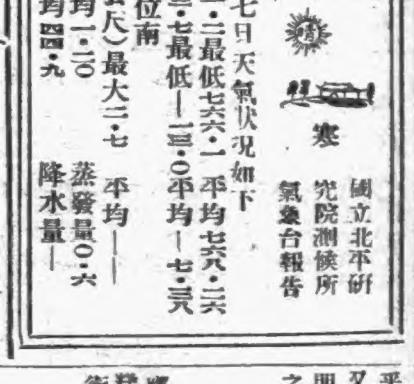 國立北平研
究院測候所
氣象台報告
晴
寒
七日天氣狀況如下
・二最低七六六・一 平均七六八・二六
・七最低—一三・〇平均—七・三八
位南
尺)最大二・七 平均——
均一・二〇 蒸發量〇・六
均四四・九 降水量—
又
之